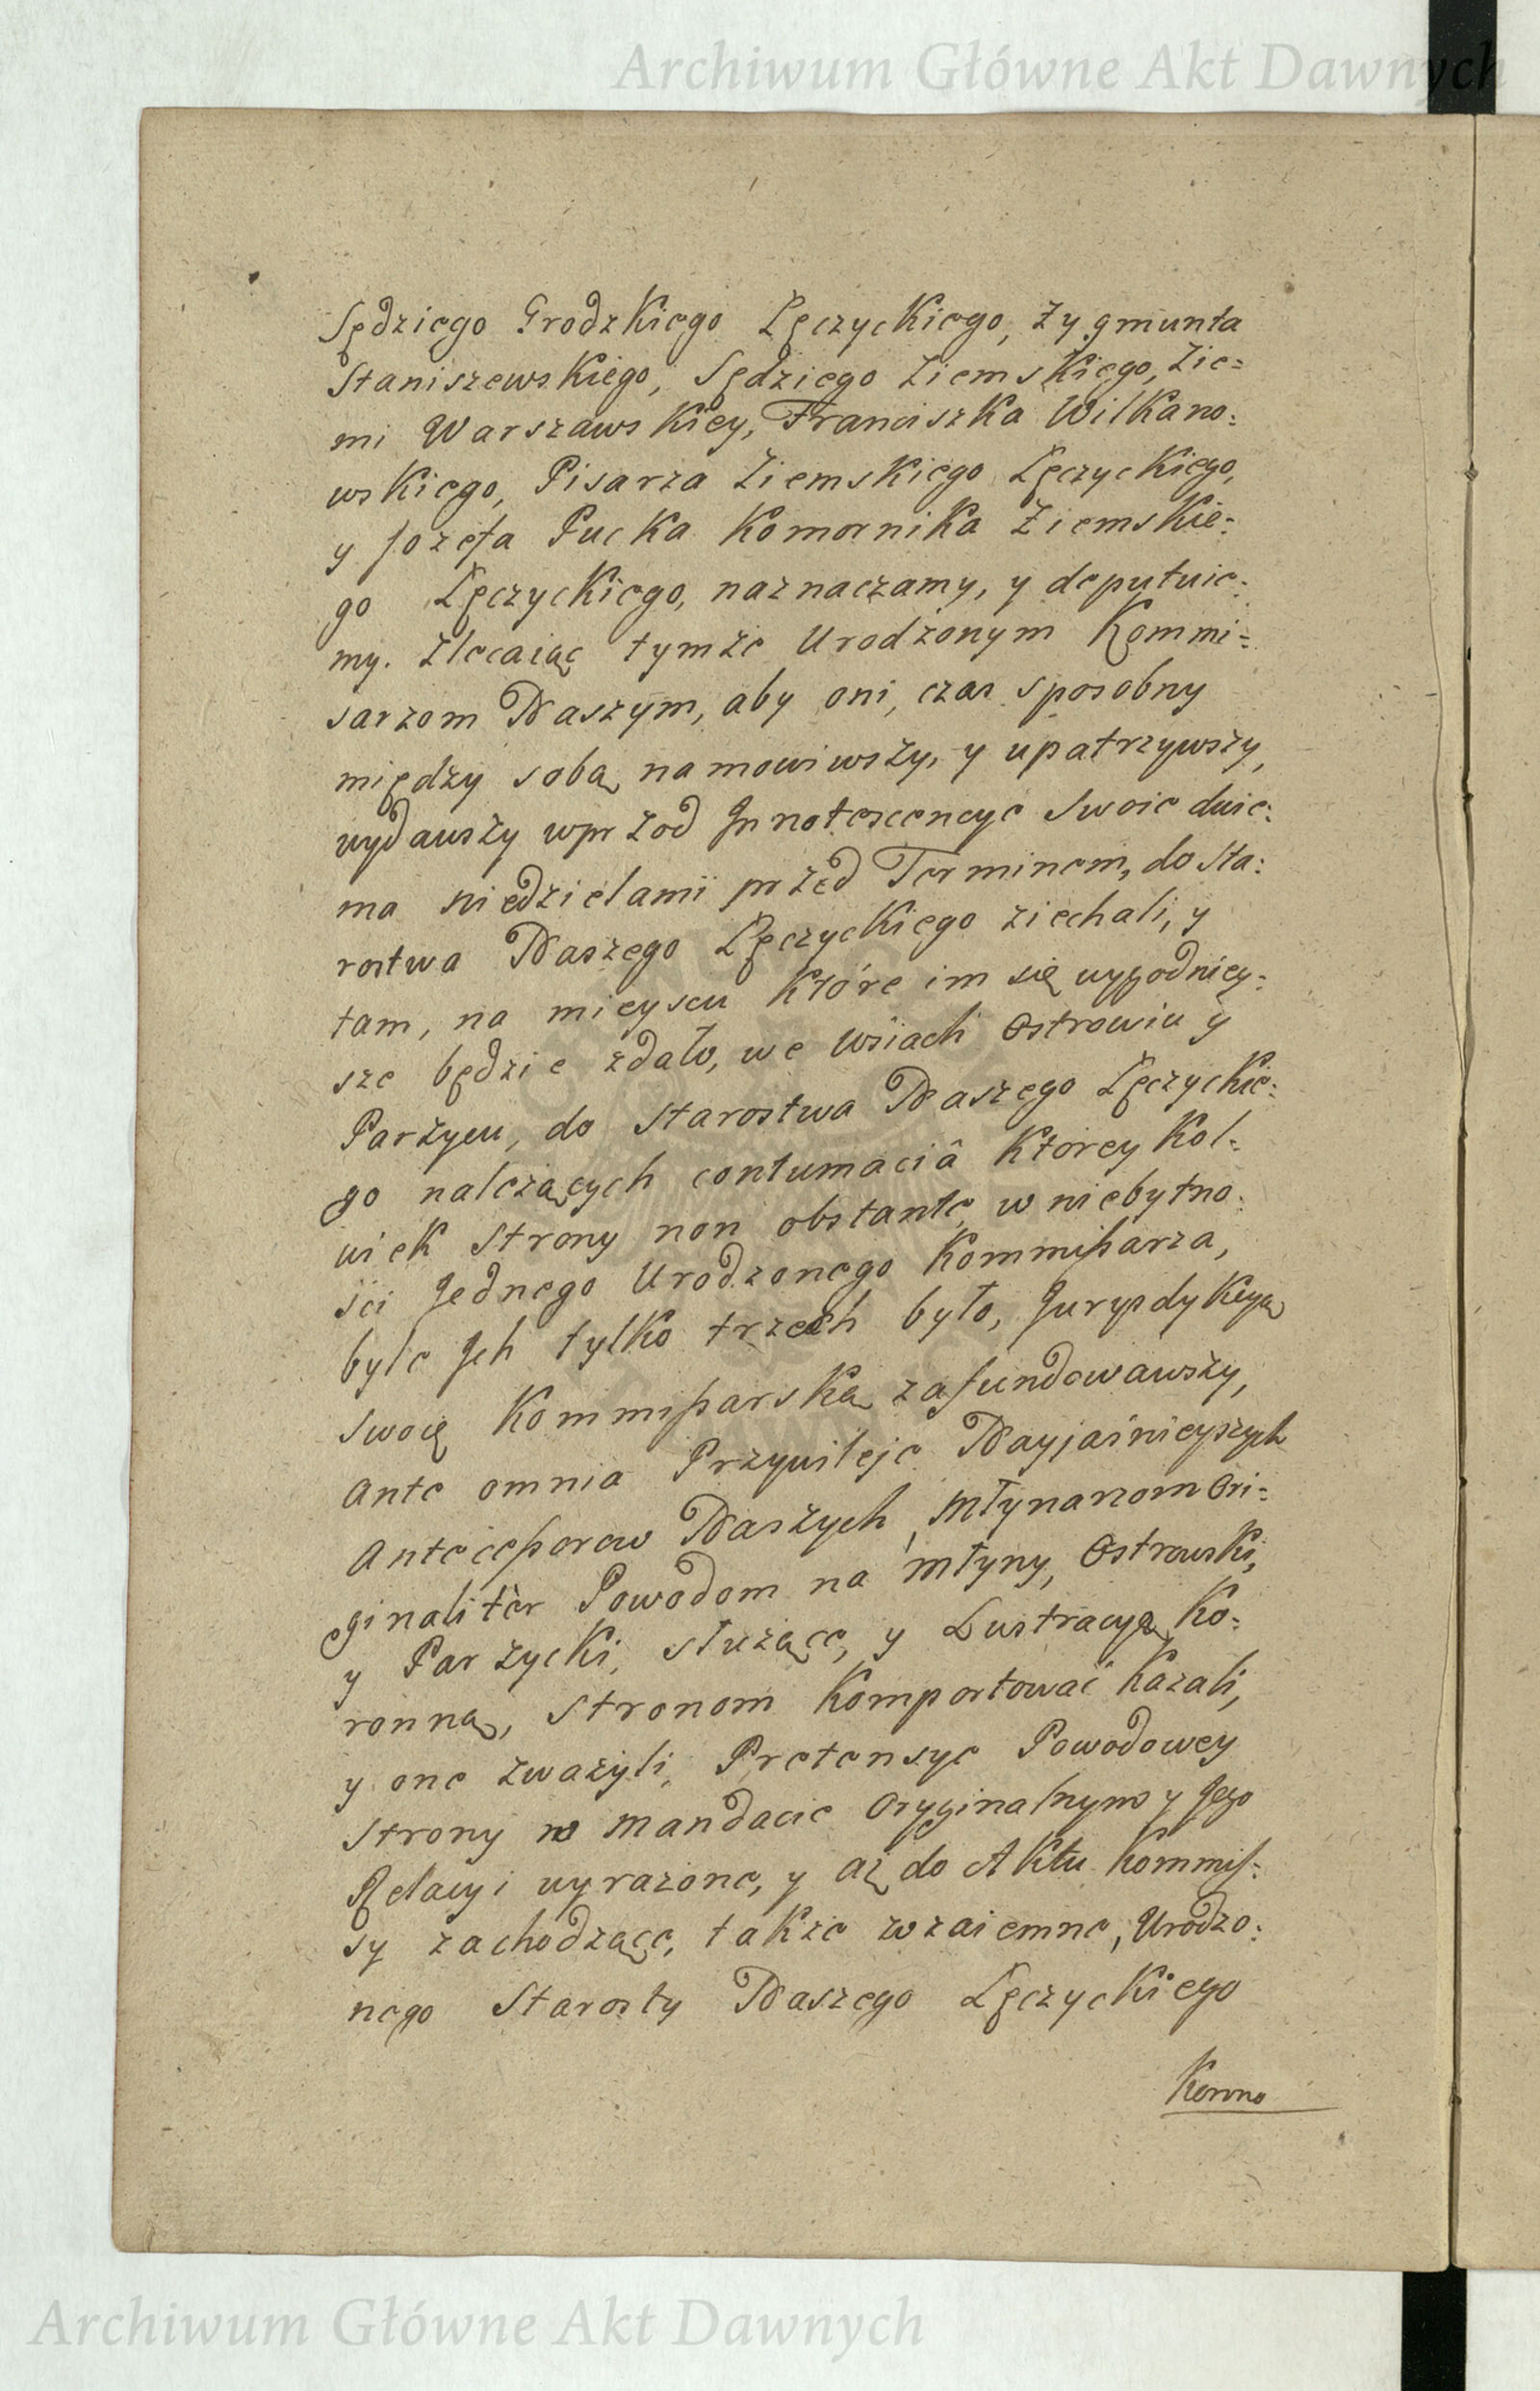 Archiwum Główne Akt Dawnych
Sędziego Grodzkiego Łęczyckiego, Zygmunta
Staniszewskiego, Sędziego Ziemskiego, Zie=
mi Warszawskiey, Franciszka Wilkano=
wskiego, Pisarza Ziemskiego Łęczyckiego,
y Jozefa Pucka Komornika Ziemskie=
go Łęczyckiego, naznaczamy, y deputuie=
my. Zlecaiąc tymże Urodzonym Kommi=
sarzom Naszym, aby oni, czas sposobny
między sobą namowiwszy, y upatrzywszy,
wydawszy wprzod Innotescencye swoie dwie=
ma Niedzielami przed Terminem, do Sta=
rostwa Naszego Łęczyckiego ziechali, y
tam, na mieyscu które im się wygodniey=
sze będzie zdało, we Wsiach Ostrowiu y
Parzycu, do Starostwa Naszego Łęczyckie=
go należących contumaciâ ktorey kol=
wiek strony non obstante, w niebytno=
ści Jednego Urodzonego Kommißarza,
byle Jch tylko trzech było, Juryzdykcyą
swoię Kommißarską zafundowawszy,
ante omnia Przywileje Nayjaśnieyszych
Anteceßorow Naszych, Młynarzom ori=
ginaliter Powodom na Młyny, Ostrowski,
y Parzycki, służące, y Lustracyą Ko=
ronną, Stronom komportować kazali,
y one zważyli, Pretensye Powodowey
Strony w Mandacie Oryginalnym y Jego
Relacyi wyrażone, y aż do Aktu Kommis=
sy zachodzące, także wzaiemne, Urodzo=
nego Starosty Naszego Łęczyckiego
Archiwum Główne Akt Dawnych